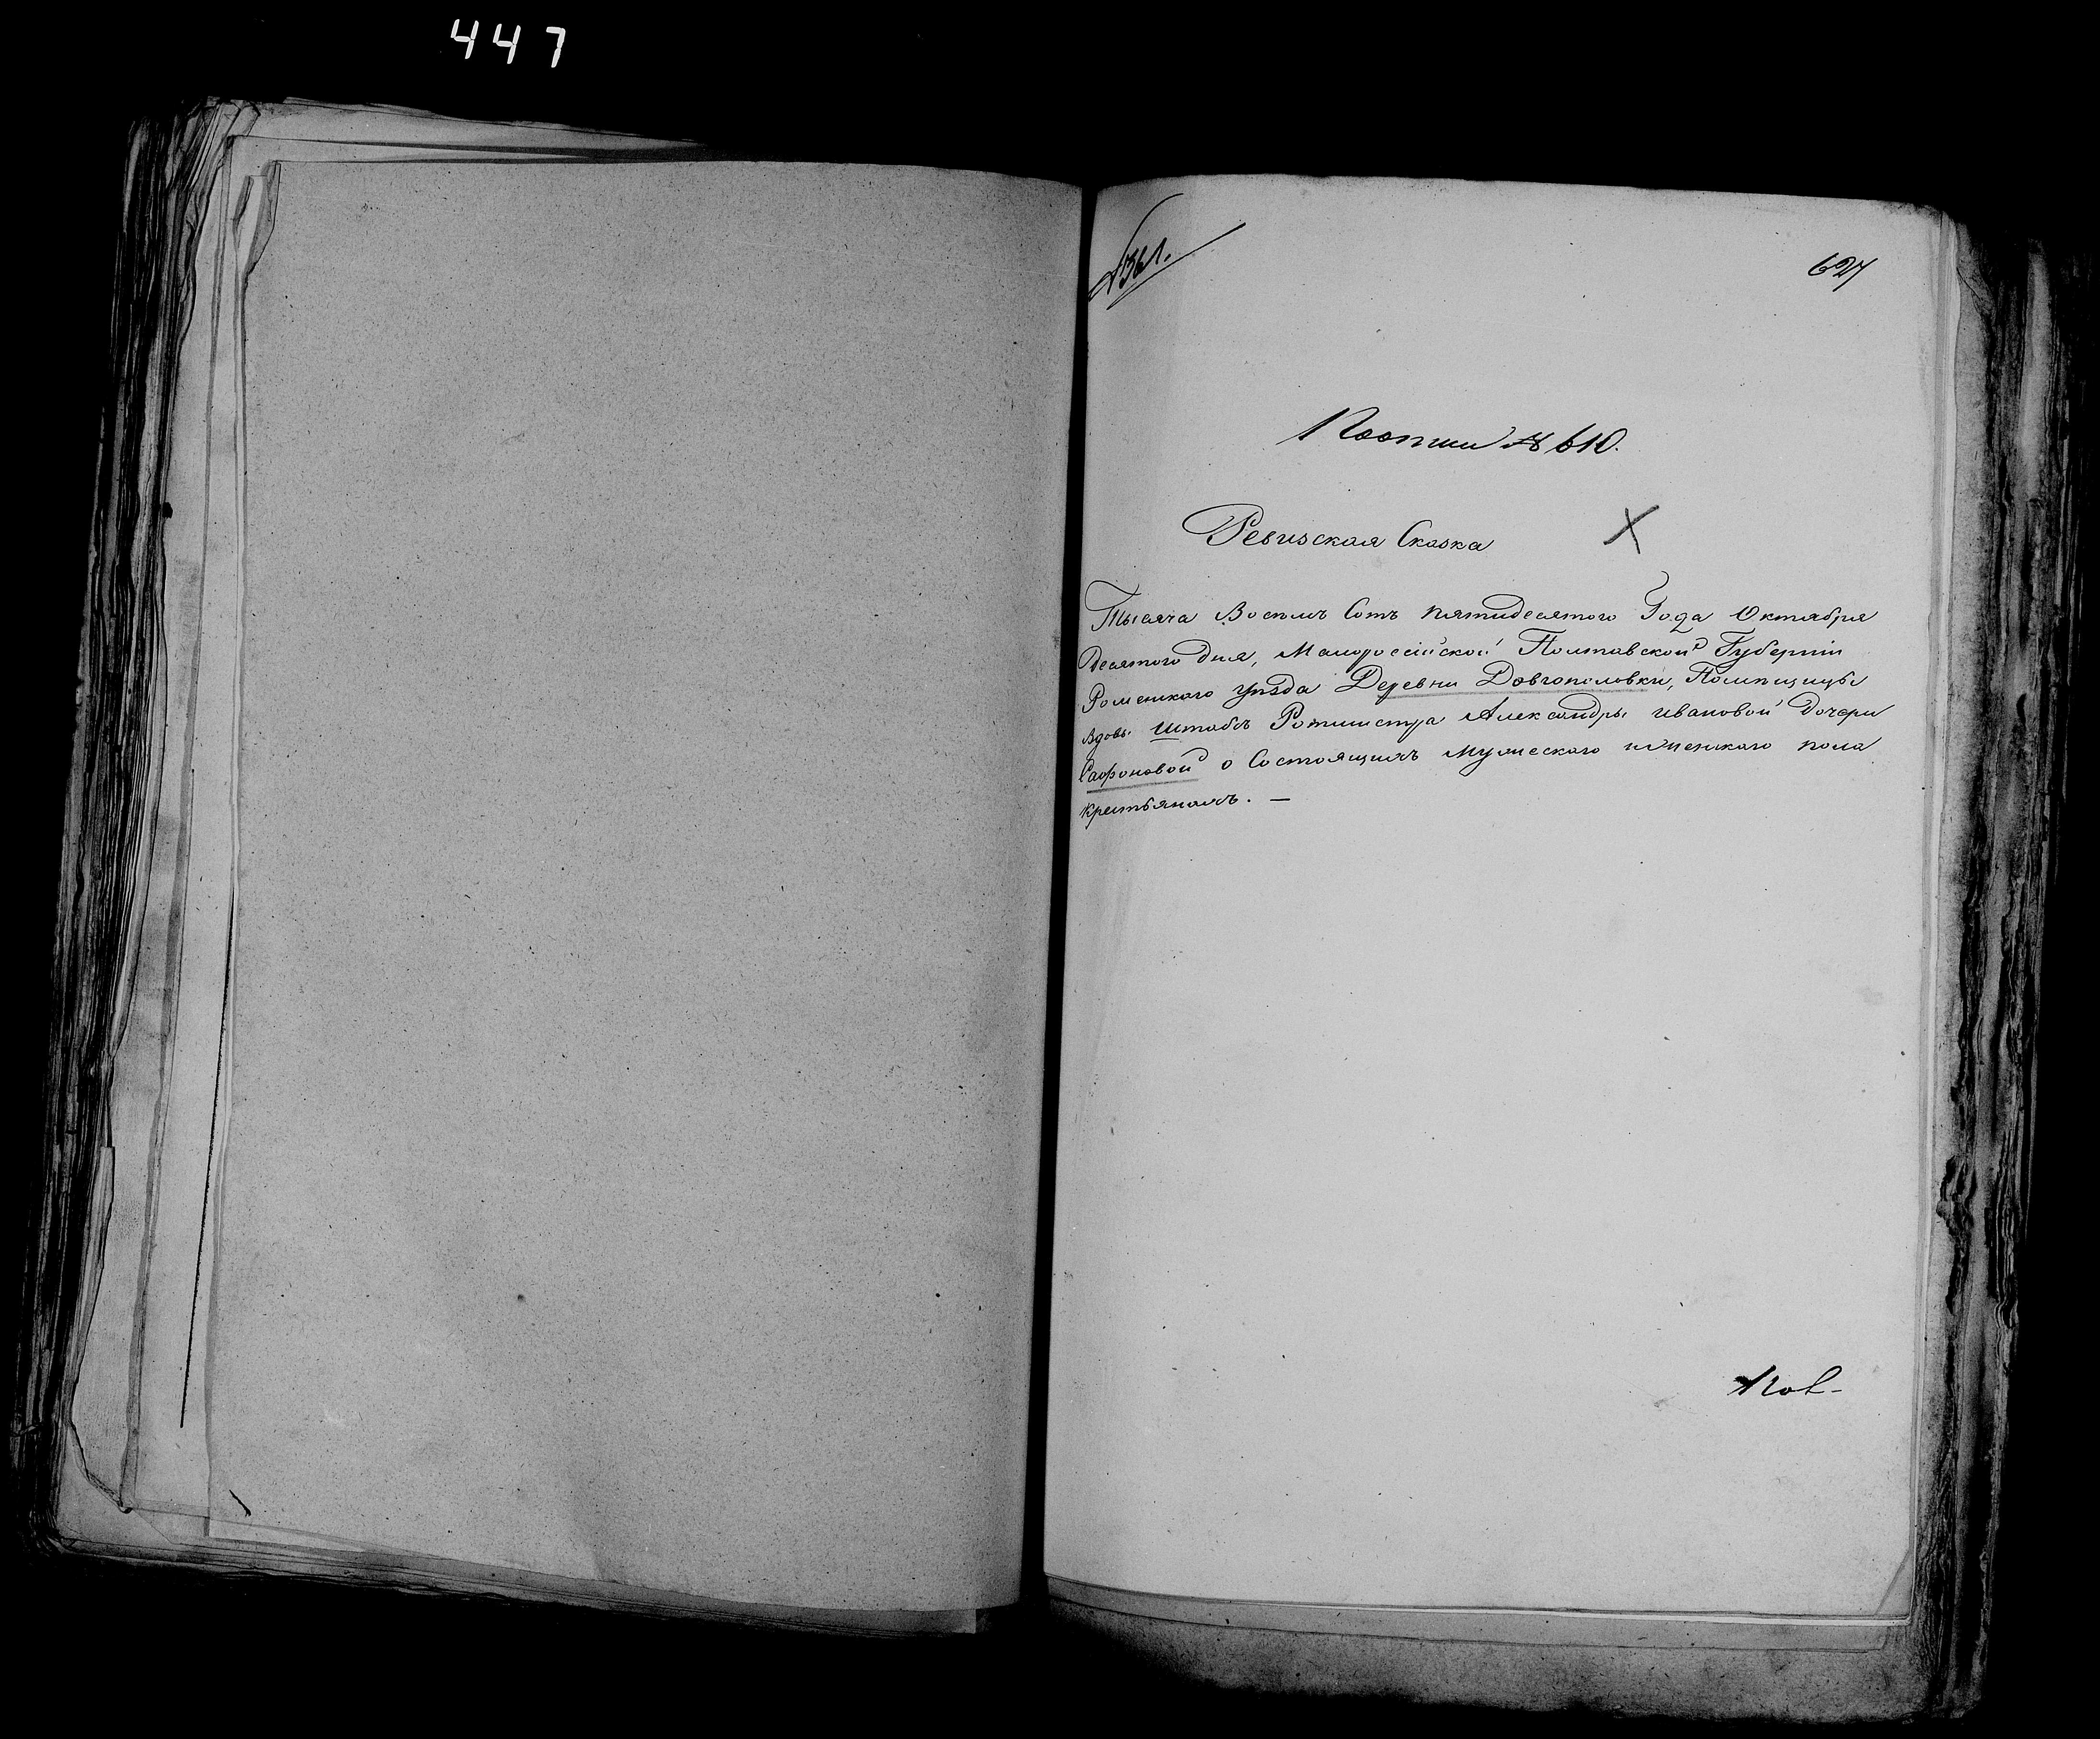 447
627
№ 610.
Ревизская Сказка
Тысяча Восемь Сотъ пятидесятого Года Октября
Десятого дня, Малороссійской Полтавской Губерніи
Роменского уѣзда Деревни Довгополовки, Помѣщицы
вдовы Штабсъ Ротмистра Александры Ивановой Дочери
Сафоновой о Состоящихъ мужеского и женского пола
крестьянахъ. —